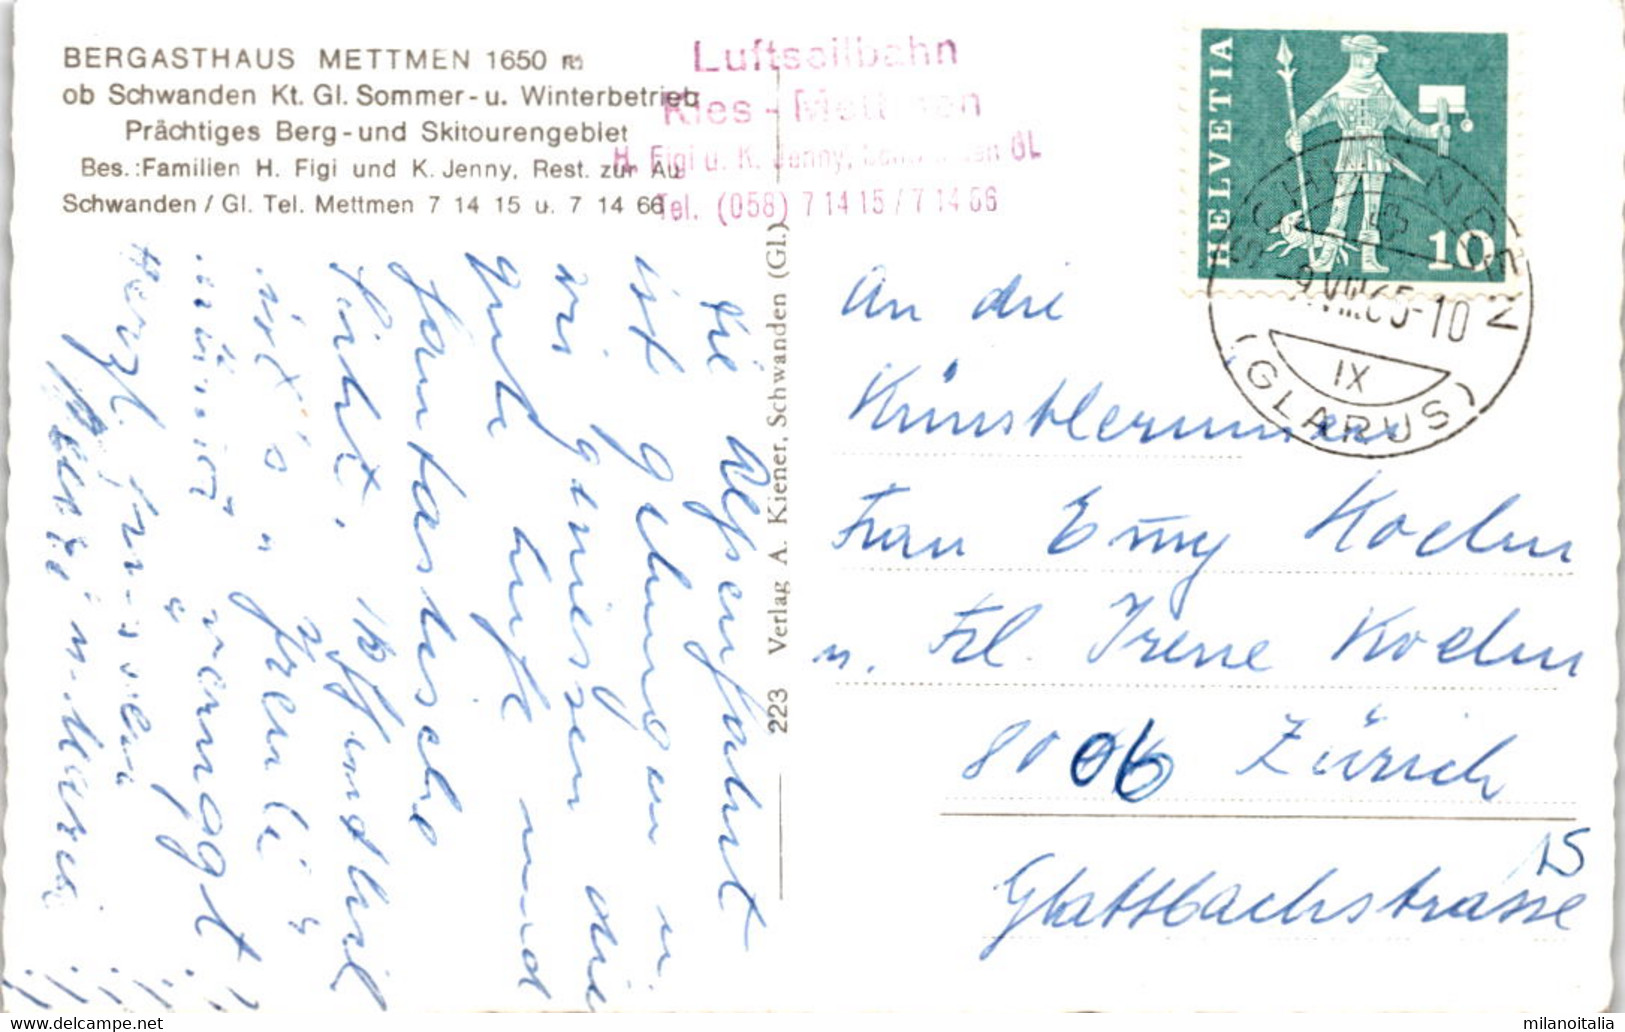 BERGASTHAUS METTMEN 1650 m
ob Schwanden Kt. Gl. Sommer- u. Winterbetrieb
Prächtiges Berg- und Skitourengebiet
Bes.: Familien H. Figi und K. Jenny, Rest. zur Au
Schwanden / Gl. Tel. Mettmen 7 14 15 u. 7 14 66
Luftseilbahn
Kies - Mettmen
H. Figi u. K. Jenny, Schwanden GL
Tel. (058) 7 14 15 / 7 14 66
HELVETIA
10
SCHWANDEN
-9.VIII.65-10
IX
(GLARUS)
Die Alpenfahrt
ist gelungen u.
wir geniessen die
gute Luft und
fantastische
Sicht. Hoffentlich
ist's " Freudi "
nicht " verreggt
Herzl.
223 Verlag A. Kiener, Schwanden (Gl.)
An die
Künstlerinnen
Frau Emy
u. Frl. Irene
8006 Zürich
15
Glattbachstrasse
milanoitalia
www.delcampe.net